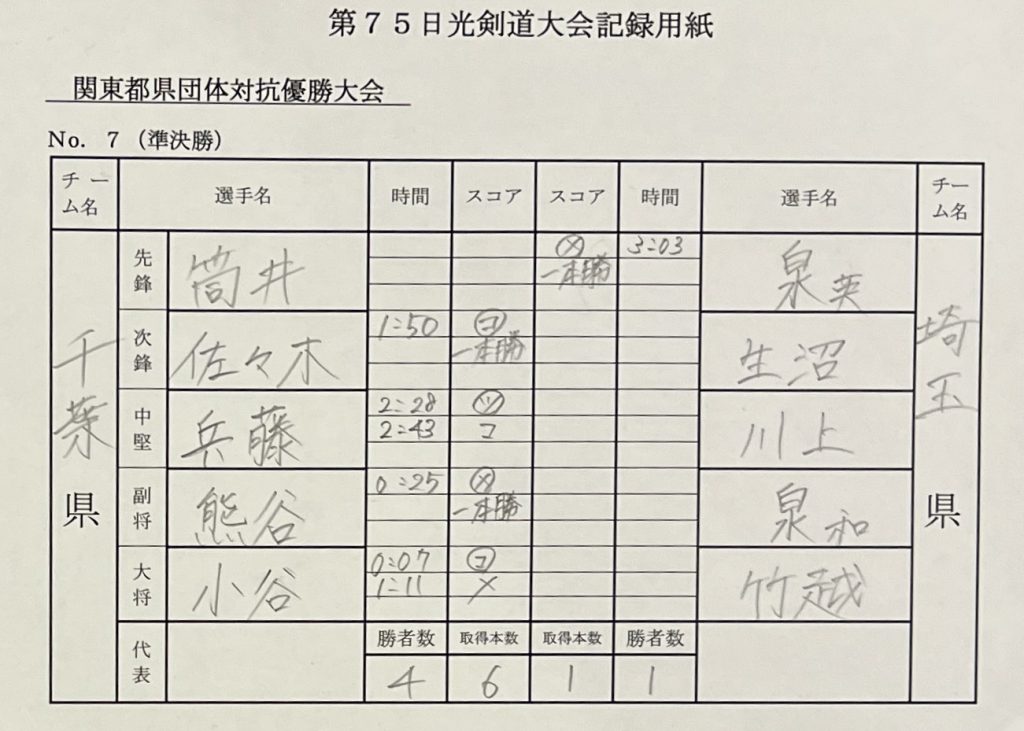 第７５日光剣道大会記録用紙
関東都県団体対抗優勝大会
No. 7 （準決勝）
チーム名 選手名 時間 スコア スコア 時間 選手名 チーム名
千葉県 埼玉県
先鋒 筒井 ㋱ 3:03 泉英
一本勝
次鋒 佐々木 1:50 ㋙ 生沼
一本勝
中堅 兵藤 2:28 ㋡ 川上
2:43 コ
副将 熊谷 0:25 ㋱ 泉和
一本勝
大将 小谷 0:07 ㋙ 竹越
1:11 メ
代表 勝者数 取得本数 取得本数 勝者数
4 6 1 1